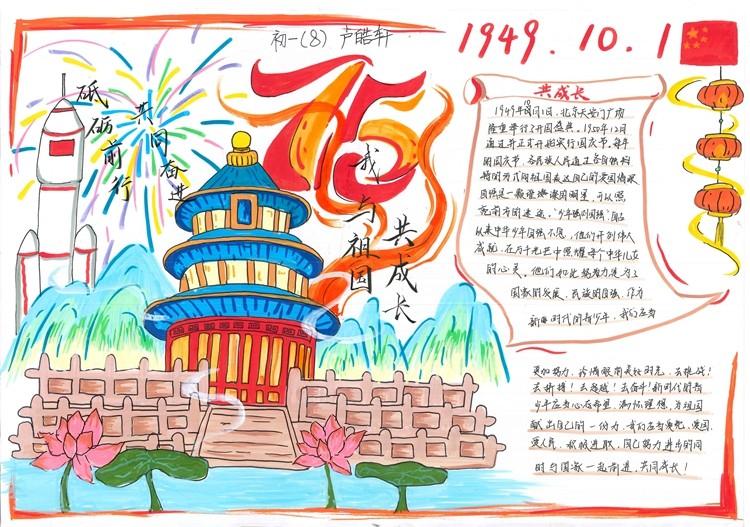 初一(8) 卢皓轩
1949.10.1
砥砺前行
共同奋进
75
我与祖国
共成长
共成长
1949年10月1日,北京天安门广场
隆重举行了开国盛典。1950年12月
通过并正式开始实行国庆节,每年
的国庆节,各民族人民通过各自独
特的方式向祖国表达自己的爱国情
自强是一颗璀璨
亮前方的道路,"少年强则国强"自古
以来中华少年自强不息,他们开创伟大
成就,在万千光芒中照耀每个中华儿女
的心灵,他们如此努力是为了
国家的发展、民族的自强,作为
新时代的青少年,我们应当
更加努力,珍惜眼前美好时光,去挑战!
去拼搏!去超越!去奋斗!新时代的青
少年应当心存希望,满怀理想,为祖国
献出自己的一份力,我们应当爱党、爱国、
爱人民,积极进取,用自己努力进步的同
时与国家一起前进,共同成长!